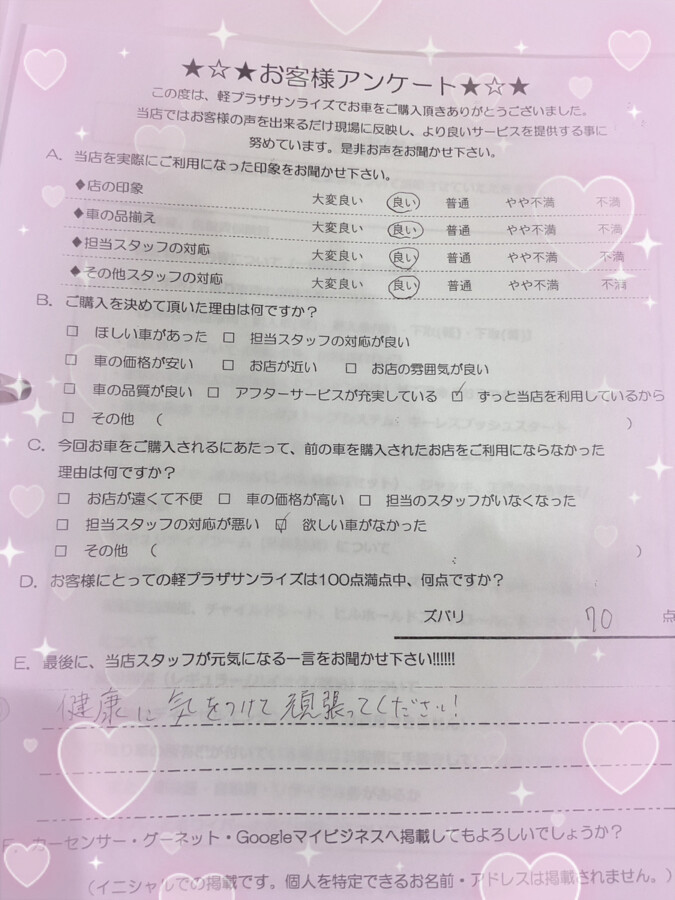 ★☆★お客様アンケート★☆★
この度は、軽プラザサンライズでお車をご購入頂きありがとうございました。
当店ではお客様の声を出来るだけ現場に反映し、より良いサービスを提供する事に
努めています。是非お声をお聞かせ下さい。
A. 当店を実際にご利用になった印象をお聞かせ下さい。
◆店の印象 大変良い 良い 普通 やや不満 不満
◆車の品揃え 大変良い 良い 普通 やや不満 不満
◆担当スタッフの対応 大変良い 良い 普通 やや不満 不満
◆その他スタッフの対応 大変良い 良い 普通 やや不満 不満
B. ご購入を決めて頂いた理由は何ですか?
□ ほしい車があった □ 担当スタッフの対応が良い
□ 車の価格が安い □ お店が近い □ お店の雰囲気が良い
□ 車の品質が良い □ アフターサービスが充実している ☑ ずっと当店を利用しているから
□ その他 ( )
C. 今回お車をご購入されるにあたって、前の車を購入されたお店をご利用にならなかった
理由は何ですか?
□ お店が遠くて不便 □ 車の価格が高い □ 担当のスタッフがいなくなった
□ 担当スタッフの対応が悪い ☑ 欲しい車がなかった
□ その他 ( )
D. お客様にとっての軽プラザサンライズは100点満点中、何点ですか?
ズバリ 70 点
E. 最後に、当店スタッフが元気になる一言をお聞かせ下さい!!!!!!
健康に気をつけて頑張ってください!
F. カーセンサー・グーネット・Googleマイビジネスへ掲載してもよろしいでしょうか?
(イニシャルでの掲載です。個人を特定できるお名前・アドレスは掲載されません。)